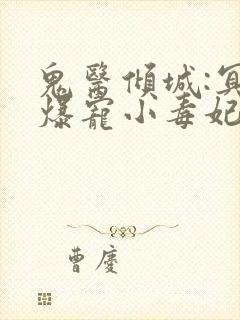 鬼醫傾城:冥
爆寵小毒妃
曹慶